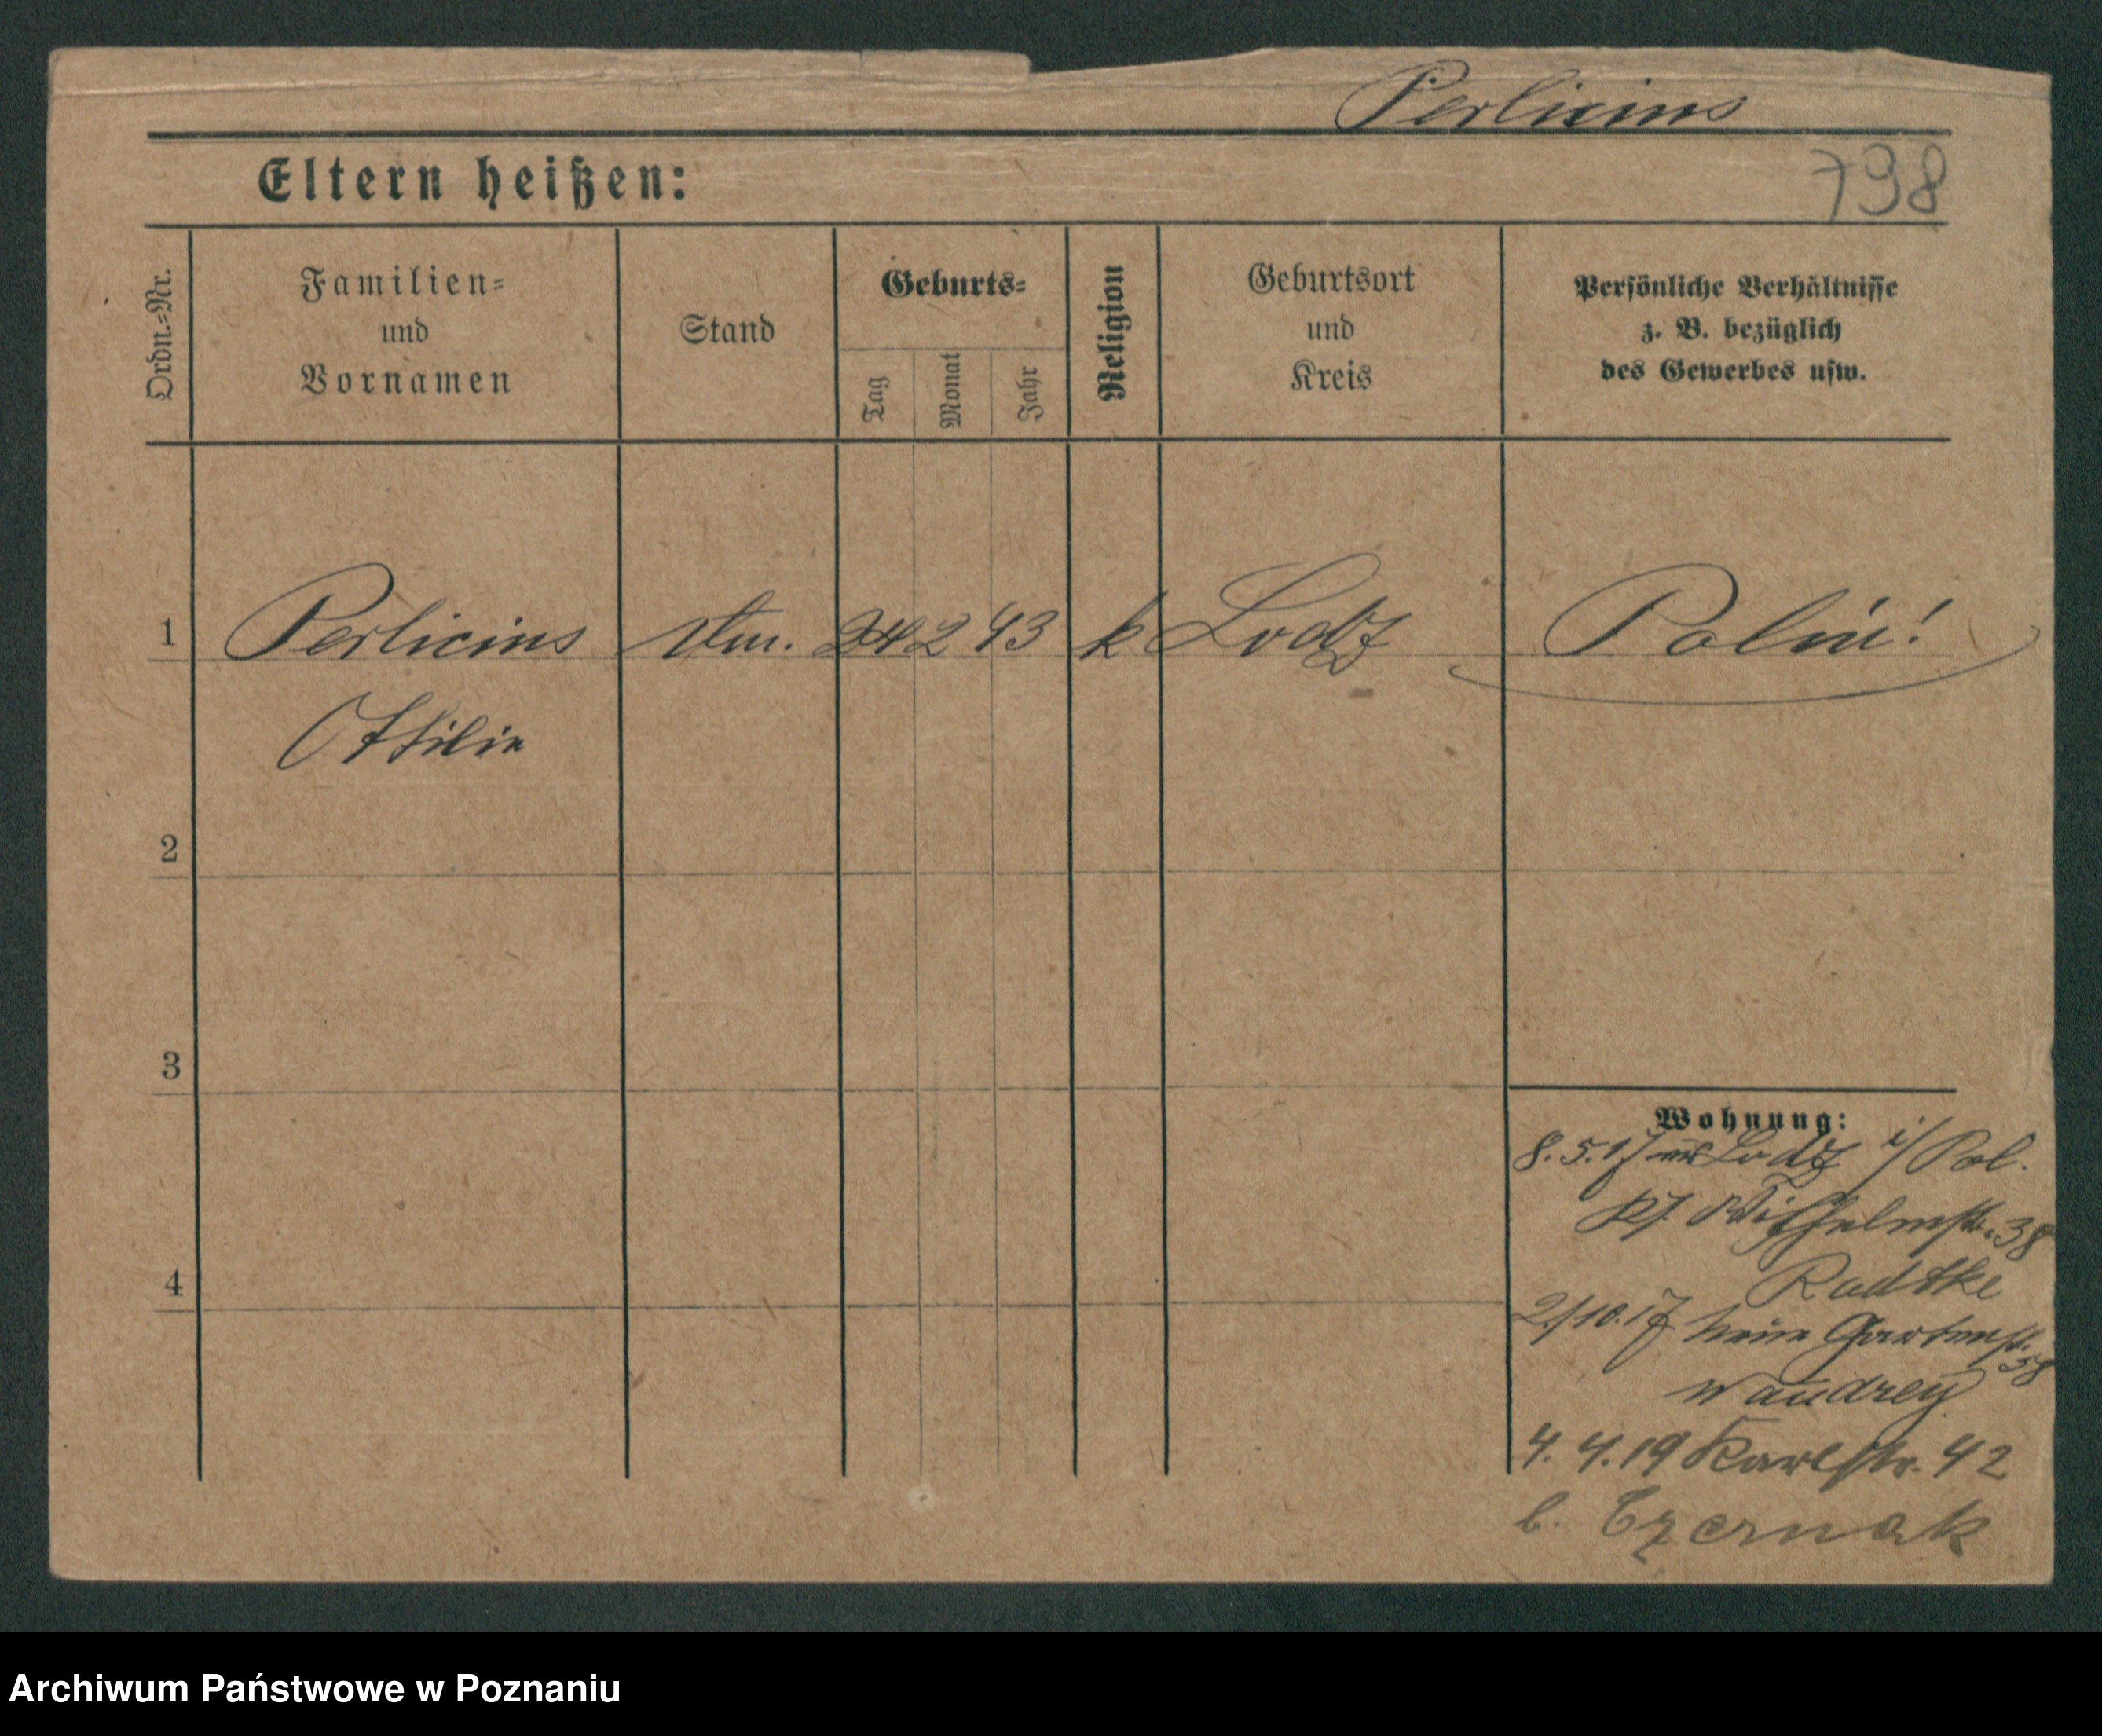 Perlicius
Eltern heißen:
798
Ordn.-Nr.
Familien-
und
Vornamen
Stand
Geburts-
Tag
Monat
Jahr
Religion
Geburtsort
und
Kreis
Persönliche Verhältnisse
z. B. bezüglich
des Gewerbes usw.
1 Perlicius 24 2 93 k Lodz Polin!
Ottilie
2
3
4
Wohnung:
8.5.17 aus Lodz i/Pol.
Wilhelmstr. 38
Radtke
2/10.17 Neue Gartenstr. 58
Waudrey
4. 4. 19 Karlstr. 42
b. Czernak
Archiwum Państwowe w Poznaniu